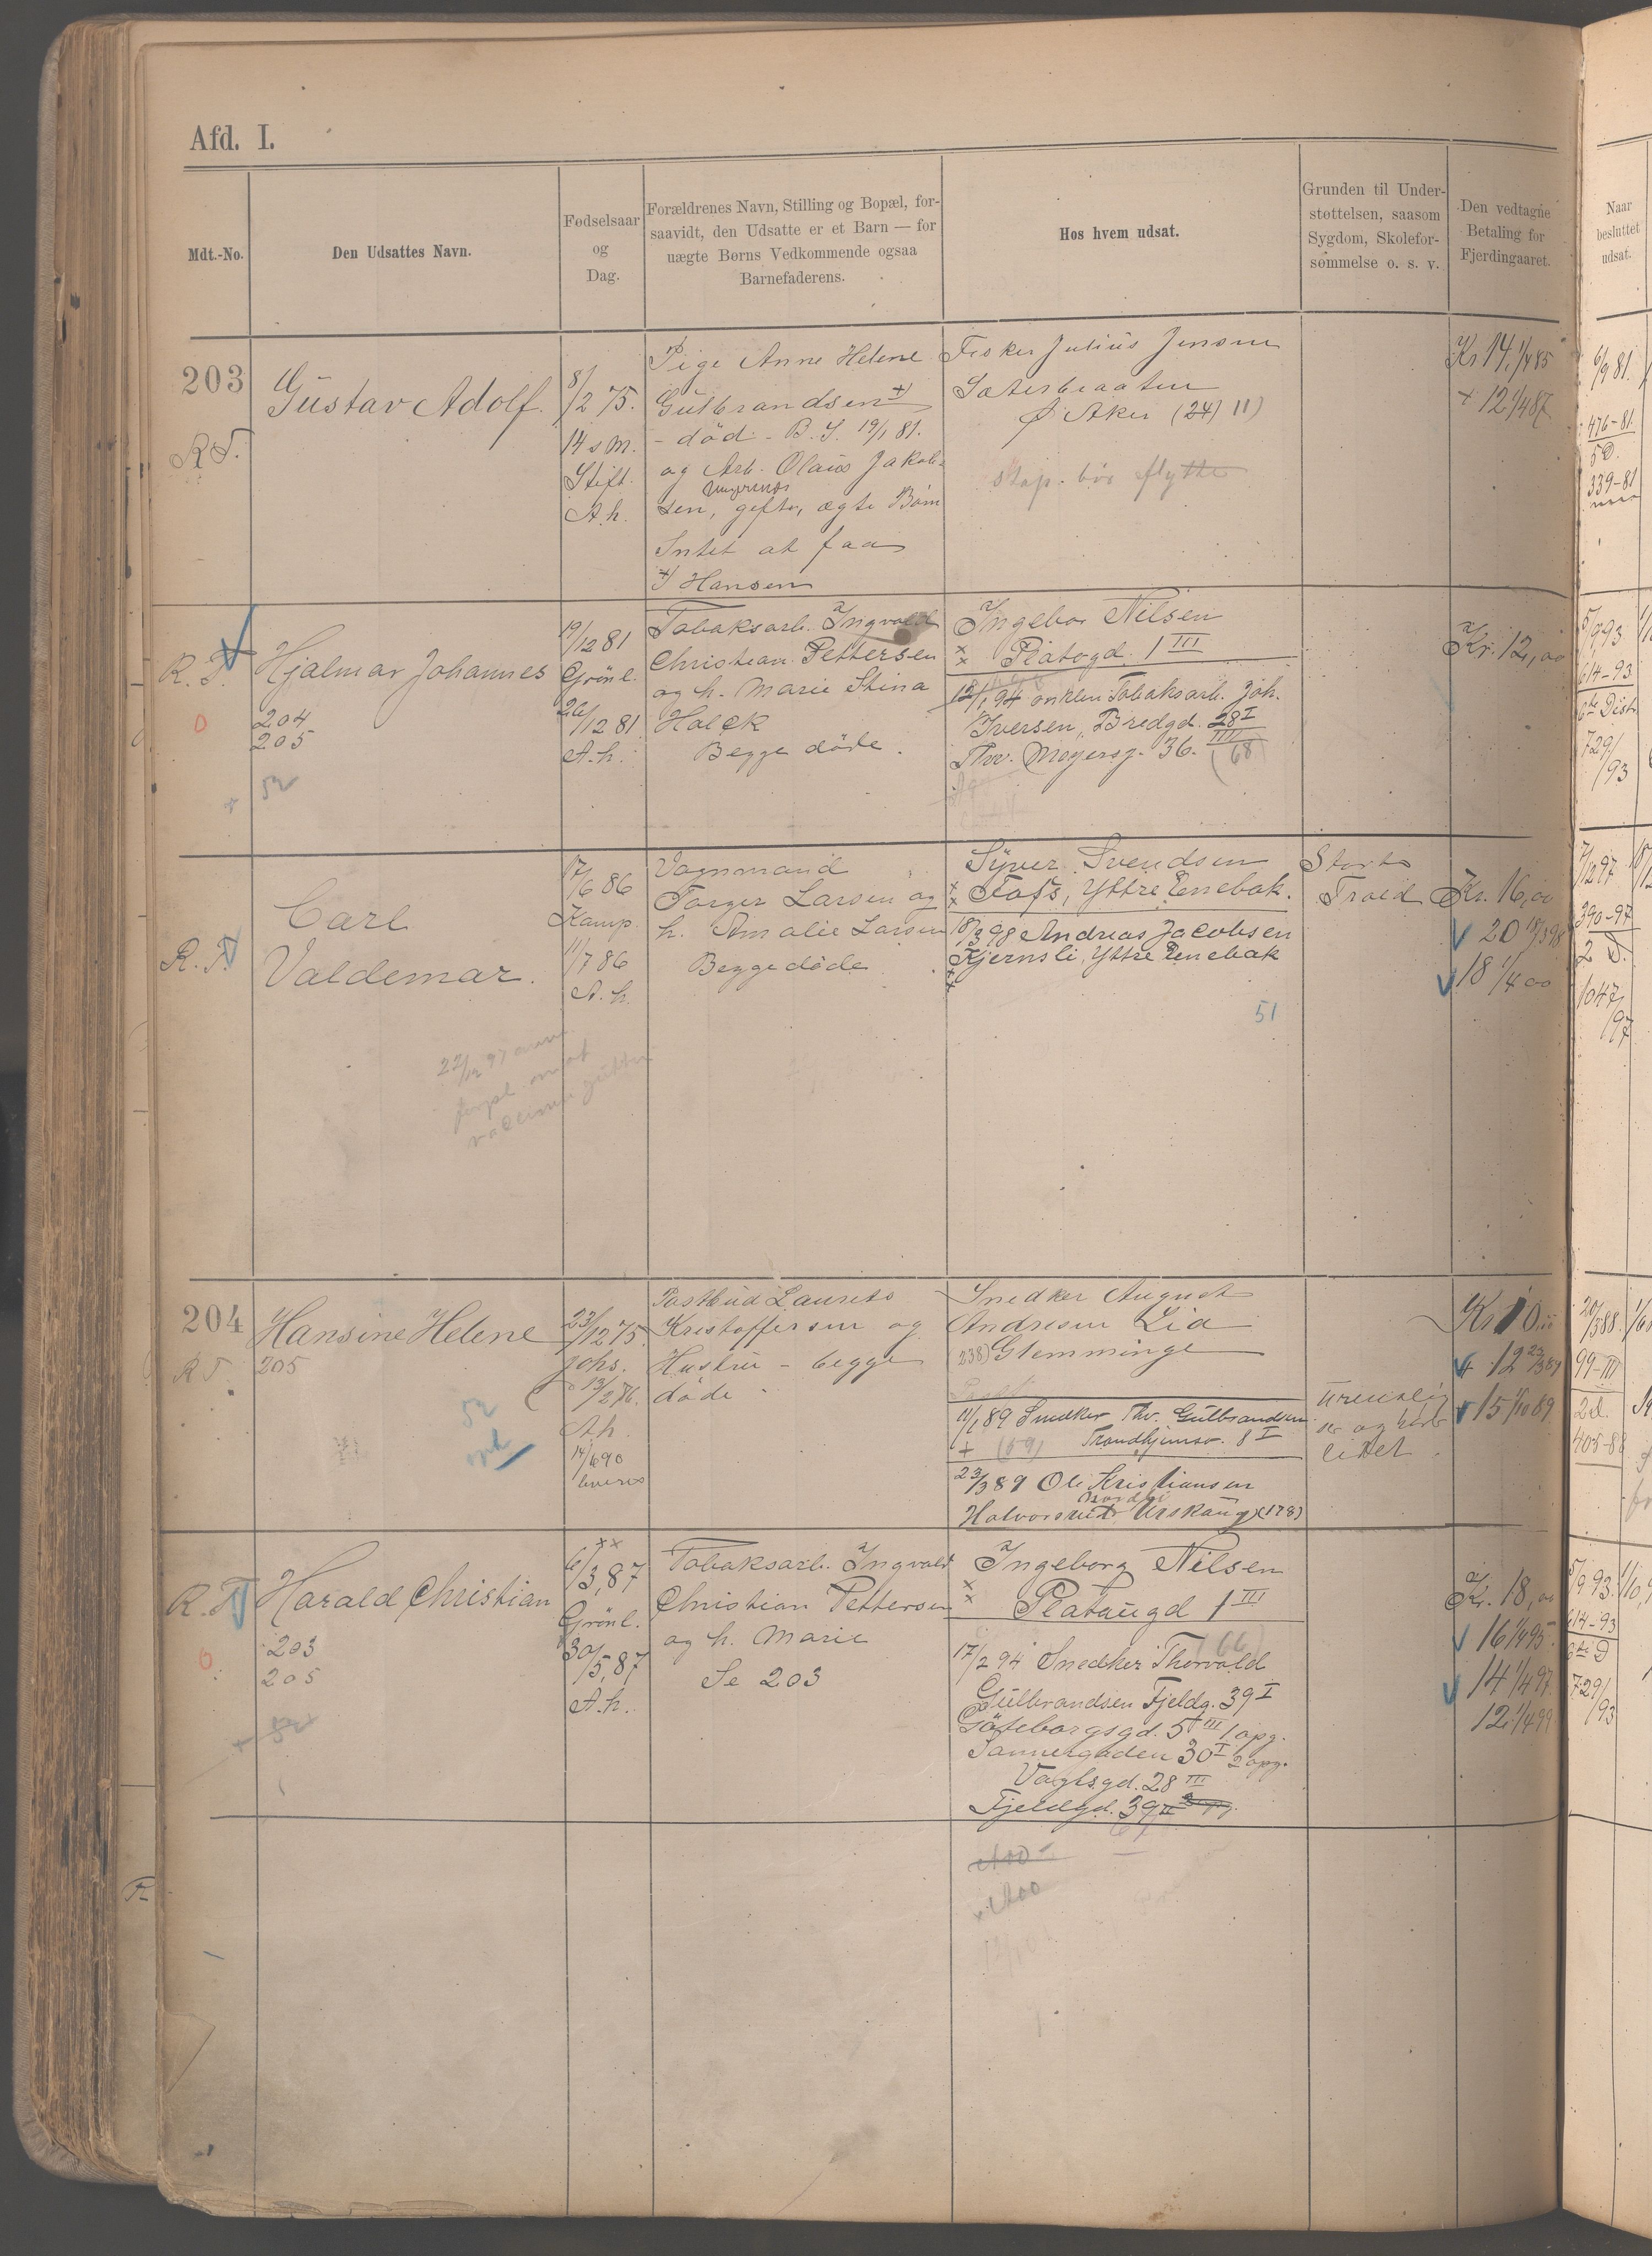 Afd. I.
Mdt.-No.
Den Udsattes Navn.
Fødselsaar
og
Dag.
Forældrenes Navn, Stilling og Bopæl, for-
saavidt, den Udsatte er et Barn — for
uægte Børns Vedkommende ogsaa
Barnefaderens.
Hos hvem udsat.
Grunden til Under-
støttelsen, saasom
Sygdom, Skolefor-
sømmelse o. s. v.
Den vedtagne
Betaling for
Fjerdingaaret.
Naar
besluttet
udsat.
203
R T.
Gustav Adolf.
8/2 75.
14 s M.
Stift.
A.h.
Pige Anne Helene
Gulbrandsen +)
- død - B. S. 19/1 81.
og Arb. Olaus Jakob-
sen, gifte, ægte Børn
Intet at faa
+) Hansen
Fisker Julius Jensen
Sæterbraaten
Ø. Aker (24) 11)
Skap. bør flytte
Kr 14. 1/4 85
+ 12 1/4 87
6/9 81.
476-81
5 D.
339-81
R. T.
Hjalmar Johannes
204
205
52
19/12 81
Grønl.
26/12 81
A.h.
Tobaksarb. Ingvald
Christian Pettersen
og h. Marie Stina
Holck
Begge døde.
Ingebor Nilsen
Platogd. 1 III
12/1 94 onklen Tobaksarb. Joh.
Iversen, Bredgd. 28 I
Thv. Meyersg. 36. IIII
(68)
Kr. 12,00
5/9 93
614-93
6te Distr
729/93
R. T.
Carl
Valdemar.
17/6 86
Kamp.
11/7 86
A.h.
Vognmand
Torger Larsen og
h. Amalie Larsen
Begge døde
Syver Svendsen
Tofs, Yttre Enebak.
18/3 98 Andreas Jacobsen
Kjernsli, Yttre Enebak
51
Kr. 16,00
20 18/3 98
18 1/4 00
7/12 97
390-97
2 D.
1047/97
204
R T.
Hansine Helene
205
52
23/12 75.
Johs.
13/2 76.
A.h.
14/4 90
Postbud Laurets
Kristoffersen og
Hustru - begge
døde
Snedker August
Andresen Lia
(238) Glemminge
11/1 89 Snedker Thv. Gulbrandsen
+ (59) Trondhjemsv. 8 I
23/3 89 Ole Kristiansen
Halvorsrud Urskoug (178)
Kr 10
12 23/3 89
15 1/10 89
20/3 88.
99-III
2 d.
405-88
R. T.
Harald Christian
203
205
52
6/3, 87
Grønl.
30/5, 87
A.h.
Tobaksarb. Ingvald
Christian Pettersen
og h. Marie
Se 203
Ingeborg Nilsen
Platougd 1 III
(66)
17/2 94 Snedker Thorvald
Gulbrandsen Fjeldg. 39 I
Göteborgsgd. 5 III 1 opg.
Sannergaden 30 I 2 opg.
Vogtsgd. 28 III
Fjeldgd. 39 II
Kr. 18,00
16 1/4 95.
14 1/4 97.
12 1/4 99
5/9 93.
614-93
6te D
729/93